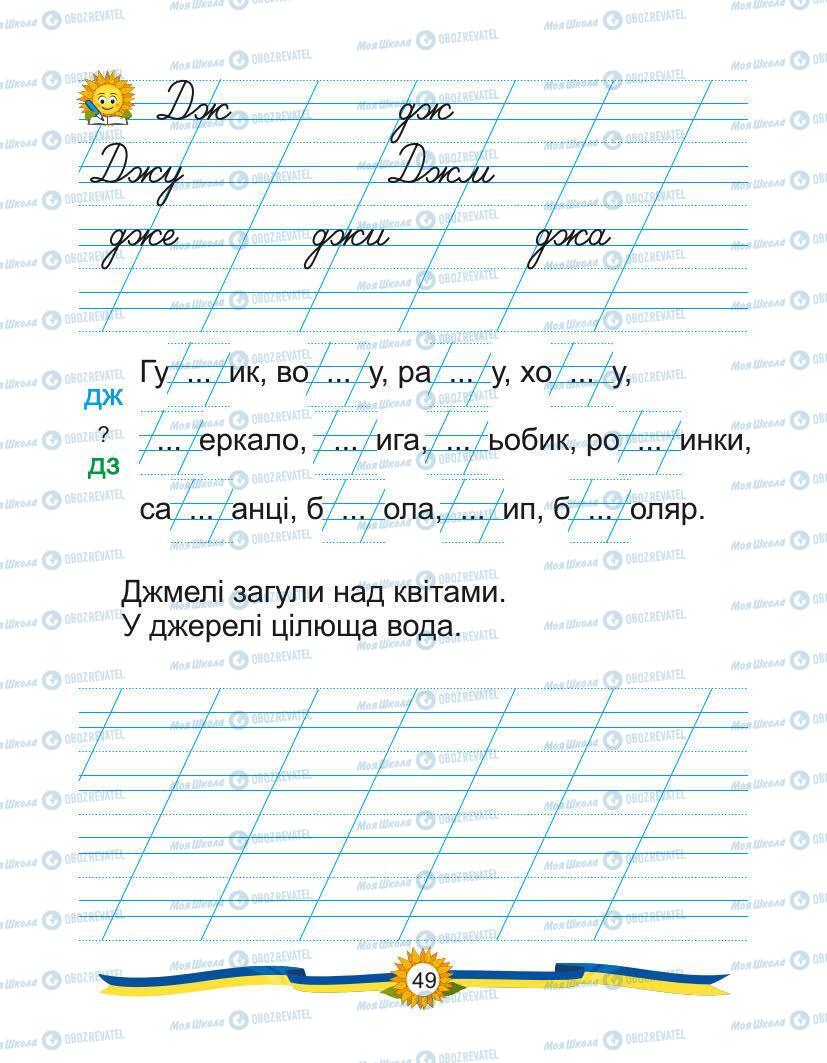 Дж дж
Джу Джм
дже джи джа
Гу ... ик, во ... у, ра ... у, хо ... у,
дж
?
... еркало, ... ига, ... ьобик, ро ... инки,
дз
са ... анці, б ... ола, ... ип, б ... оляр.
Джмелі загули над квітами.
У джерелі цілюща вода.
49
Моя Школа OBOZREVATEL